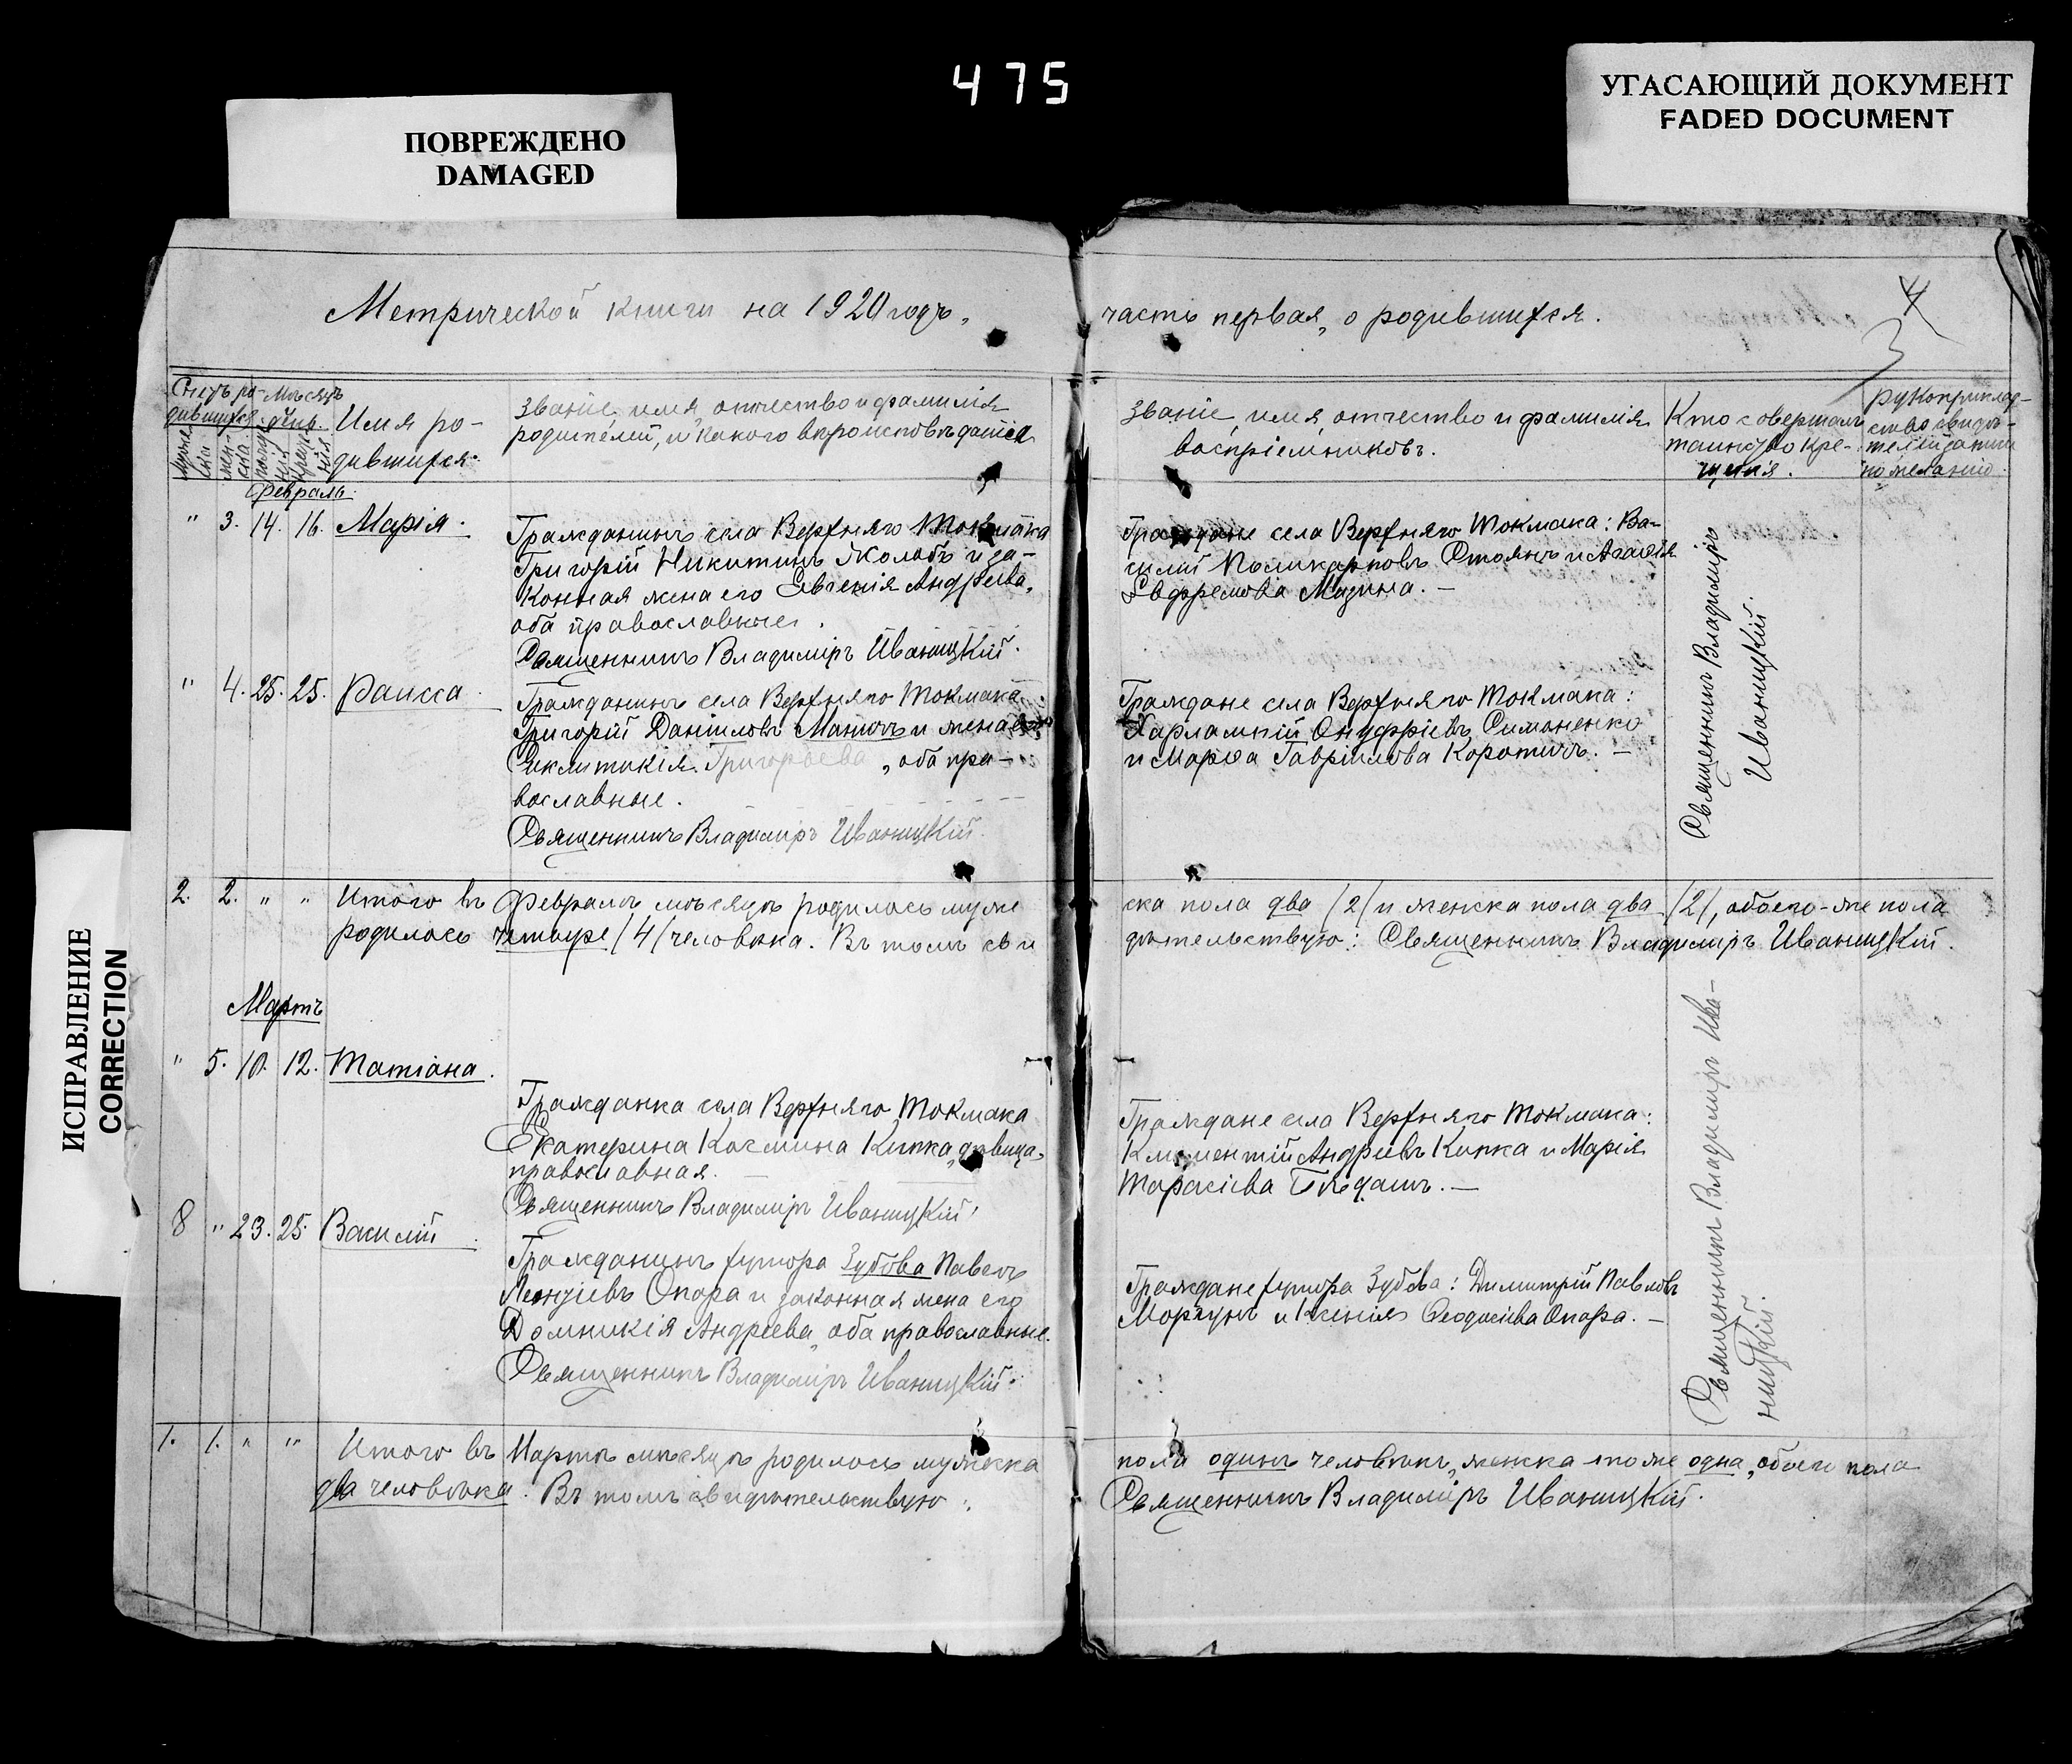 475
ПОВРЕЖДЕНО
DAMAGED
УГАСАЮЩИЙ ДОКУМЕНТ
FADED DOCUMENT
ИСПРАВЛЕНИЕ
CORRECTION
Метрической книги на 1920 годъ,
часть первая, о родившихся.
4
3
Счетъ ро- Мѣсяцъ
дившихся. день.
Имя ро-
дившихся.
Званіе, имя, отчество и фамилія
родителей, и какого вѣроисповѣданія
Званіе, имя, отчество и фамилія
воспріемниковъ.
Кто совершалъ
таинство кре-
щенія.
Рукоприклад-
ство свидѣ-
телей записи
по желанію.
Февраль.
" 3. 14. 16. Марія.
Гражданинъ села Верхняго Токмака
Григорій Никитинъ Жолобъ и за-
конная жена его Евгенія Андреева,
оба православные.
Священникъ Владиміръ Иваницкій.
Граждане села Верхняго Токмака: Ва-
силій Поликарповъ Стоянъ и Агафія
Евфремова Мизина. —
Священникъ Владиміръ
Иваницкій.
" 4. 25. 25. Раисса.
Гражданинъ села Верхняго Токмака
Григорій Даніиловъ и жена его
Синклитикія Григорьева, оба пра-
вославные.
Священникъ Владиміръ Иваницкій.
Граждане села Верхняго Токмака:
Харлампій Онуфріевъ Симоненко
и Марѳа Гавріилова Коротичъ. —
2. 2. " " Итого въ Февралѣ мѣсяцѣ родилось муже
ска пола два /2/ и женска пола два /2/, обоего-же пола
родилось четыре /4/ человѣка. Въ томъ сви
дѣтельствую: Священникъ Владиміръ Иваницкій.
Мартъ
" 5. 10. 12. Татіана.
Гражданка села Верхняго Токмака
Екатерина Космина Кипка, дѣвица,
православная. —
Священникъ Владиміръ Иваницкій.
Граждане села Верхняго Токмака:
Климентій Андреевъ Кипка и Марія
Тарасіева —
Священникъ Владиміръ Ива-
ницкій.
8 " 23. 25. Василій
Гражданинъ хутора Зубова Павелъ
Леонтіевъ Опара и законная жена его
Домникія Андреева, оба православные.
Священникъ Владиміръ Иваницкій.
Граждане хутора Зубова: Димитрій Павловъ
Моргунъ и Ксенія Ѳеодосіева Опара. —
1. 1. " " Итого въ Мартѣ мѣсяцѣ родилось мужска
пола одинъ человѣкъ, женска-тоже одна, обоего пола
два человѣка. Въ томъ свидѣтельствую:
Священникъ Владиміръ Иваницкій.